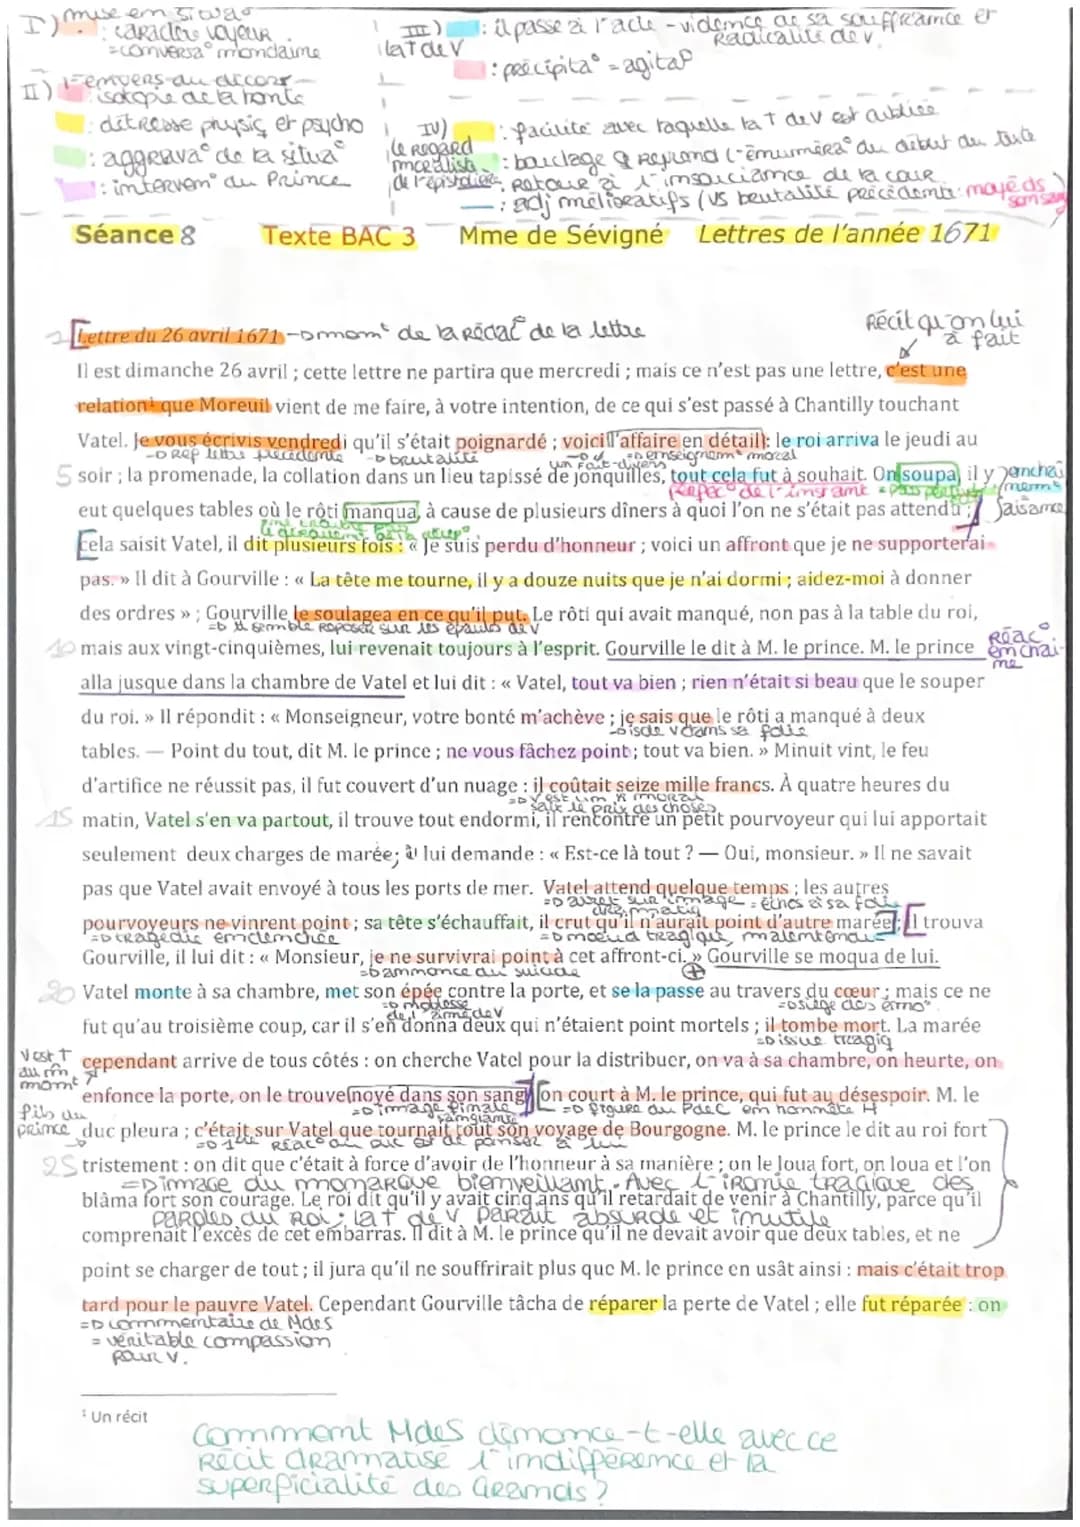 I) mise en situa°
: caractère voyeur
= conversa° mondaine
II) l'envers du décor
: isotopie de la honte
: détresse physiq et psycho
: aggrava° de la situa°
: interven° du Prince
III)
la † de V
: il passe à l'acte - violence de sa souffrance et
Radicalité de V.
: précipita° = agita°
IV)
le Regard
moraliste
de l'épistolière
: facilité avec laquelle la † de V est oubliée
: bouclage Reprend l'énuméra° du début du texte
Retour à l'insouciance de la cour
: adj mélioratifs (VS brutalité précédente: noyé ds son sang)
Séance 8 Texte BAC 3 Mme de Sévigné Lettres de l'année 1671
Lettre du 26 avril 1671 → momt de la Rédac° de la lettre
Récit qu'on lui a fait
Il est dimanche 26 avril ; cette lettre ne partira que mercredi ; mais ce n'est pas une lettre, c'est une
relation¹ que Moreuil vient de me faire, à votre intention, de ce qui s'est passé à Chantilly touchant
Vatel. Je vous écrivis vendredi qu'il s'était poignardé ; voici l'affaire en détail : le roi arriva le jeudi au
→ Rép lettre précédente → brutalité un fait-divers → enseignemt moral
5 soir ; la promenade, la collation dans un lieu tapissé de jonquilles, tout cela fut à souhait. On soupa, il y
eut quelques tables où le rôti manqua, à cause de plusieurs dîners à quoi l'on ne s'était pas attendu ;
Cela saisit Vatel, il dit plusieurs fois : « Je suis perdu d'honneur ; voici un affront que je ne supporterai
pas. » Il dit à Gourville : « La tête me tourne, il y a douze nuits que je n'ai dormi ; aidez-moi à donner
des ordres » ; Gourville le soulagea en ce qu'il put. Le rôti qui avait manqué, non pas à la table du roi,
⇒ tt semble reposer sur les épaules de V
Réac° enchaîné
10 mais aux vingt-cinquièmes, lui revenait toujours à l'esprit. Gourville le dit à M. le prince. M. le prince
alla jusque dans la chambre de Vatel et lui dit : « Vatel, tout va bien ; rien n'était si beau que le souper
du roi. » Il répondit : « Monseigneur, votre bonté m'achève ; je sais que le rôti a manqué à deux
→ isole V dans sa folie
tables. — Point du tout, dit M. le prince ; ne vous fâchez point ; tout va bien. » Minuit vint, le feu
d'artifice ne réussit pas, il fut couvert d'un nuage : il coûtait seize mille francs. À quatre heures du
⇒ V est un H moral
sait le prix des choses
15 matin, Vatel s'en va partout, il trouve tout endormi, il rencontre un petit pourvoyeur qui lui apportait
seulement deux charges de marée; il lui demande : « Est-ce là tout ? — Oui, monsieur. » Il ne savait
pas que Vatel avait envoyé à tous les ports de mer. Vatel attend quelque temps ; les autres
⇒ arrêt sur image = échos à sa folie
dramatiq
pourvoyeurs ne vinrent point ; sa tête s'échauffait, il crut qu'il n'aurait point d'autre marée ; il trouva
⇒ tragédie enclenchée ⇒ nœud tragique, malentendu
Gourville, il lui dit : « Monsieur, je ne survivrai point à cet affront-ci. » Gourville se moqua de lui.
⇒ annonce du suicide
20 Vatel monte à sa chambre, met son épée contre la porte, et se la passe au travers du cœur ; mais ce ne
⇒ noblesse de l'âme de V ⇒ siège des émo°
fut qu'au troisième coup, car il s'en donna deux qui n'étaient point mortels ; il tombe mort. La marée
⇒ issue tragiq
V est † au m̂ momt
cependant arrive de tous côtés : on cherche Vatel pour la distribuer, on va à sa chambre, on heurte, on
enfonce la porte, on le trouve noyé dans son sang ; on court à M. le prince, qui fut au désespoir. M. le
⇒ image finale sanglante ⇒ figure du PdeC en honnête H
fils du prince
duc pleura ; c'était sur Vatel que tournait tout son voyage de Bourgogne. M. le prince le dit au roi fort
⇒ 1ère Réac° du duc est de penser à lui
25 tristement : on dit que c'était à force d'avoir de l'honneur à sa manière ; on le loua fort, on loua et l'on
⇒ image du monarque bienveillant. Avec l'ironie tragique des
blâma fort son courage. Le roi dit qu'il y avait cinq ans qu'il retardait de venir à Chantilly, parce qu'il
paroles du Roi, la † de V paraît absurde et inutile
comprenait l'excès de cet embarras. Il dit à M. le prince qu'il ne devait avoir que deux tables, et ne
point se charger de tout ; il jura qu'il ne souffrirait plus que M. le prince en usât ainsi : mais c'était trop
tard pour le pauvre Vatel. Cependant Gourville tâcha de réparer la perte de Vatel ; elle fut réparée : on
⇒ commentaire de MdeS
= véritable compassion
pour V.
¹ Un récit
Comment MdeS dénonce-t-elle avec ce
récit dramatisé l'indifférence et la
superficialité des Grands ?